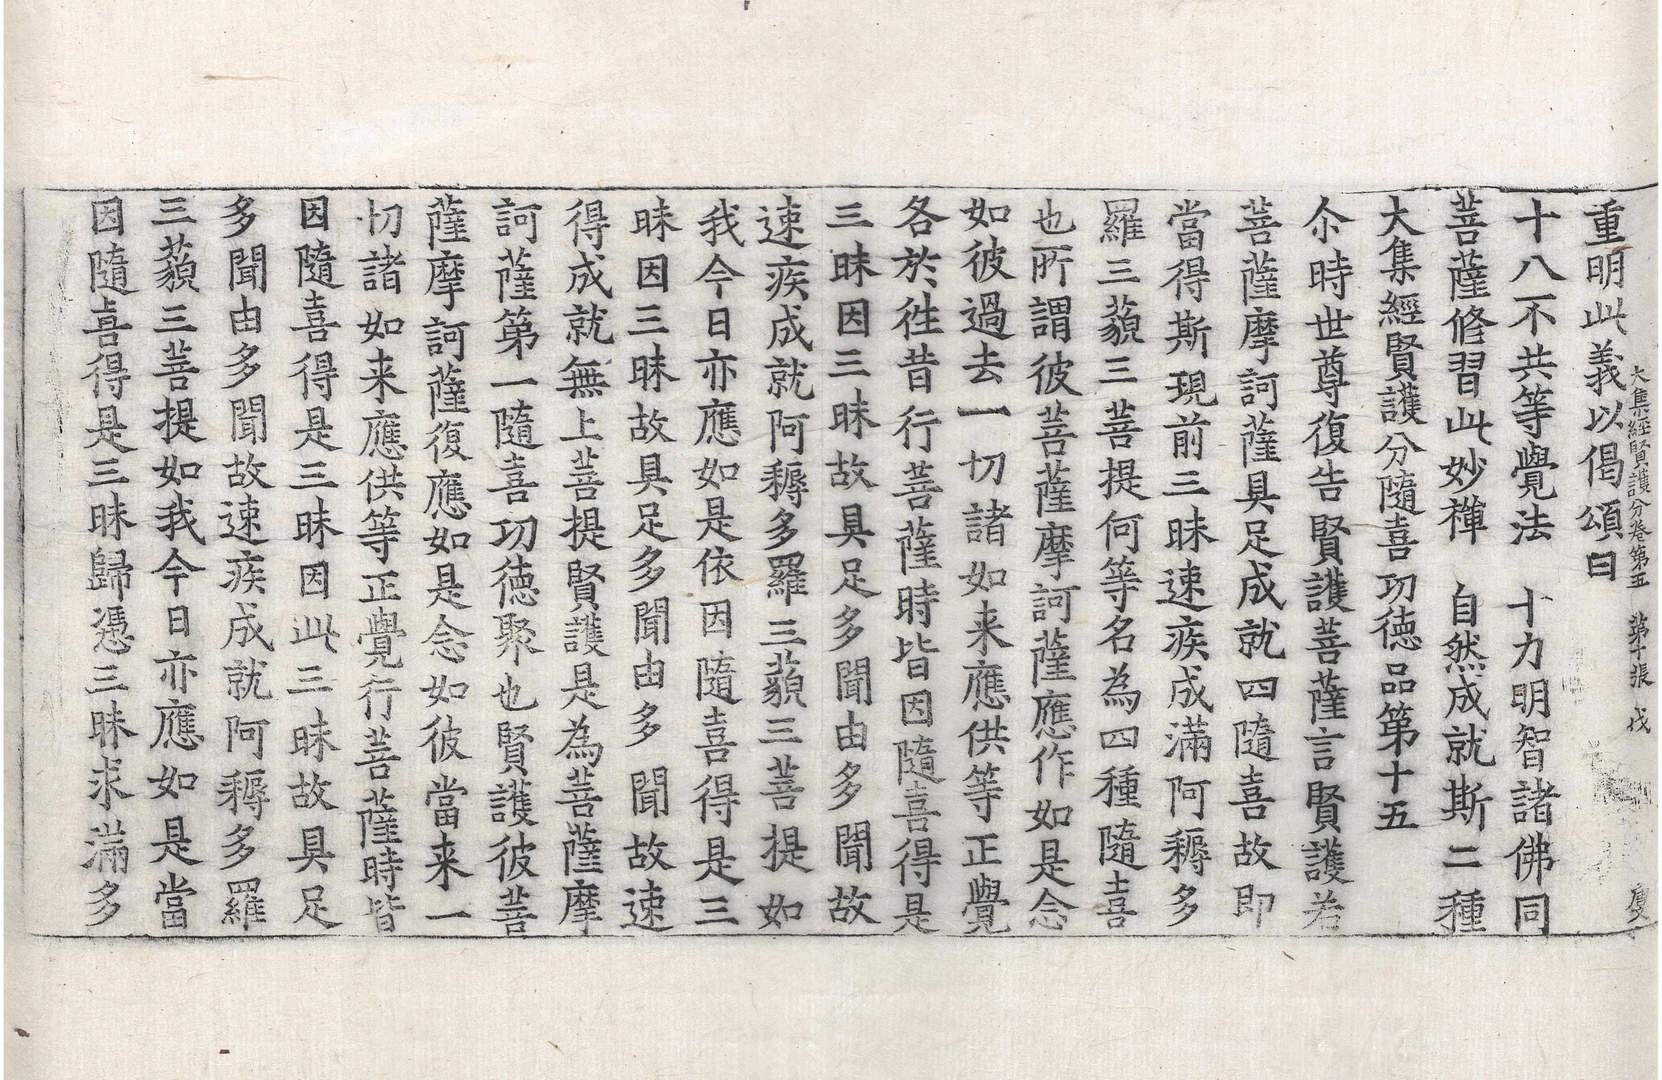 大集經賢護分卷第五 第十張 伐
重明此義以偈頌曰
十八不共等覺法 十力明智諸佛同
菩薩脩習此妙禪 自然成就斯二種
大集經賢護分隨喜功德品第十五
尒時世尊復告賢護菩薩言賢護若
菩薩摩訶薩具足成就四隨喜故即
當得斯現前三昧速疾成滿阿耨多
羅三藐三菩提何等名為四種隨喜
也所謂彼菩薩摩訶薩應作如是念
如彼過去一切諸如来應供等正覺
各於徃昔行菩薩時皆因隨喜得是
三昧因三昧故具足多聞由多聞故
速疾成就阿耨多羅三藐三菩提如
我今日亦應如是依因隨喜得是三
昧因三昧故具足多聞由多聞故速
得成就無上菩提賢護是為菩薩摩
訶薩第一隨喜功德聚也賢護彼菩
薩摩訶薩復應如是念如彼當来一
切諸如来應供等正覺行菩薩時皆
因隨喜得是三昧因此三昧故具足
多聞由多聞故速疾成就阿耨多羅
三藐三菩提如我今日亦應如是當
因隨喜得是三昧歸憑三昧求滿多